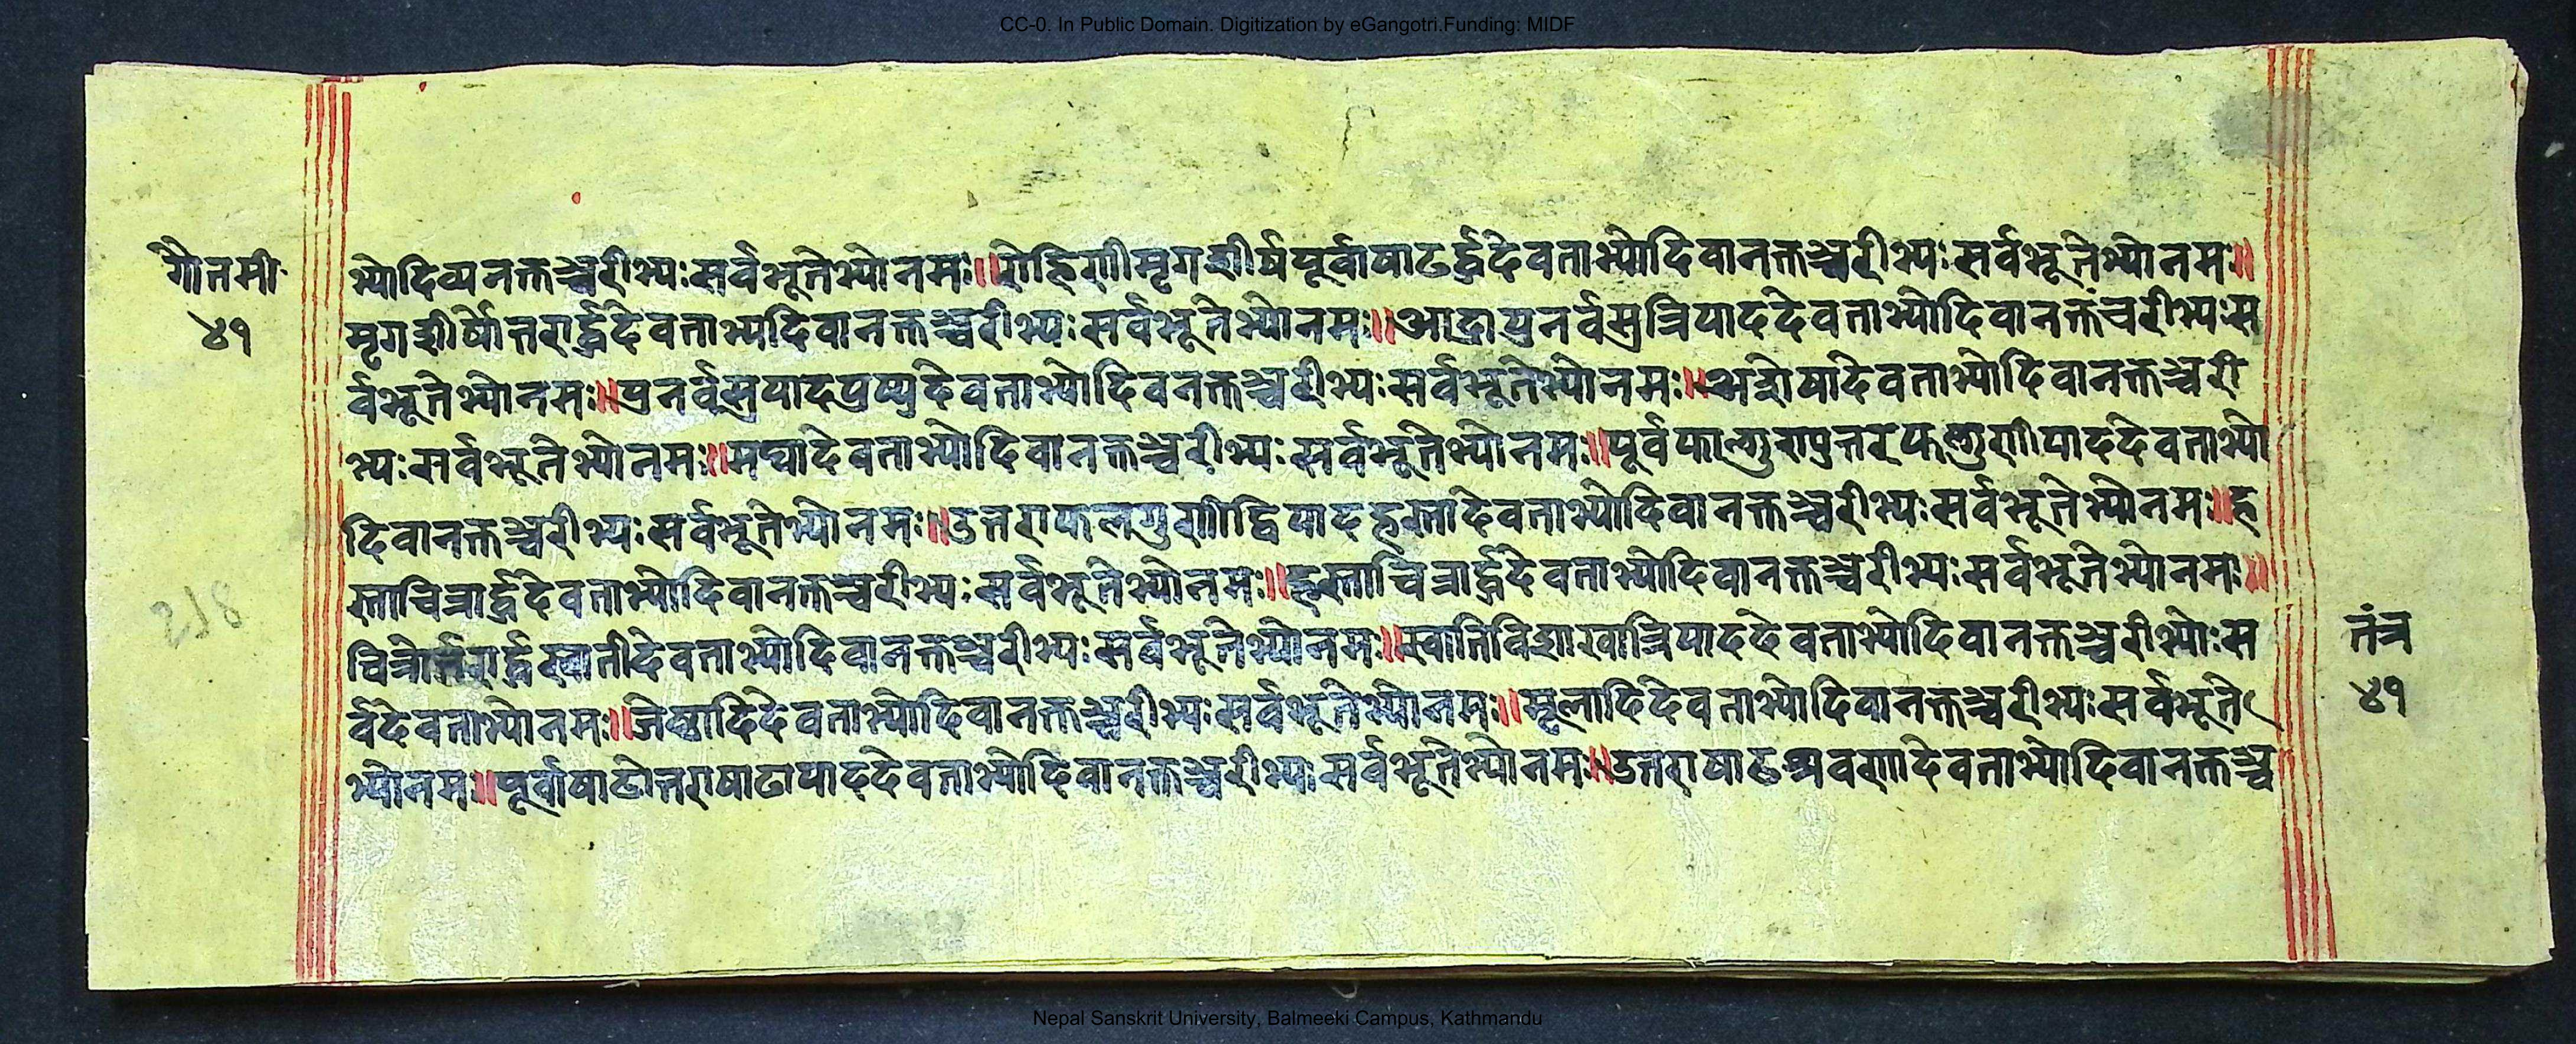 CC-0. In Public Domain. Digitization by eGangotri.Funding: MIDF
गौतमी
४१
भ्योदिव्यनक्तञ्चरीभ्यःसर्वभूतेभ्योनमः॥रोहिणीमृगशीर्षपूर्वाषाढर्द्धदेवताभ्योदिवानक्तञ्चरीभ्यःसर्वभूतेभ्योनमः॥
मृगशीर्षोत्तरार्द्धदेवताभ्यदिवानक्तञ्चरीभ्यःसर्वभूतेभ्योनमः॥आद्रापुनर्वसुत्रिपाददेवताभ्योदिवानक्तंचरीभ्यःस
र्वभूतेभ्योनमः॥पुनर्वसुपादपुष्यदेवताभ्योदिवनक्तञ्चरीभ्यःसर्वभूतेभ्योनमः॥अश्लेषादेवताभ्योदिवानक्तञ्चरी
भ्यःसर्वभूतेभ्योनमः॥मघादेवताभ्योदिवानक्तञ्चरीभ्यःसर्वभूतेभ्योनमः॥पूर्वफाल्गुणपुत्तरफल्गुणीपाददेवताभ्यो
दिवानक्तञ्चरीभ्यःसर्वभूतेभ्योनमः॥उत्तराफलगुणीद्विपादहस्तादेवताभ्योदिवानक्तञ्चरीभ्यःसर्वभूतेभ्योनमः॥ह
स्ताचित्रार्द्धदेवताभ्योदिवानक्तञ्चरीभ्यःसर्वभूतेभ्योनमः॥हस्ताचित्रार्द्धदेवताभ्योदिवानक्तञ्चरीभ्यःसर्वभूतेभ्योनमः॥
चित्रोर्तरार्द्धस्वातीदेवताभ्योदिवानक्तञ्चरीभ्यःसर्वभूतेभ्योनमः॥स्वातिविशाखात्रिपाददेवताभ्योदिवानक्तञ्चरीभ्योःस
र्वदेवताभ्योनमः॥जेष्ठादिदेवताभ्योदिवानक्तञ्चरीभ्यःसर्वभूतेभ्योनमः॥मूलादिदेवताभ्योदिवानक्तञ्चरीभ्यःसर्वभूते
भ्योनमः॥पूर्वाषाढोत्तराषाढापाददेवताभ्योदिवानक्तञ्चरीभ्यःसर्वभूतेभ्योनमः॥उत्तराषाढश्रवणादेवताभ्योदिवानक्तञ्च
तंत्र
४१
Nepal Sanskrit University, Balmeeki Campus, Kathmandu